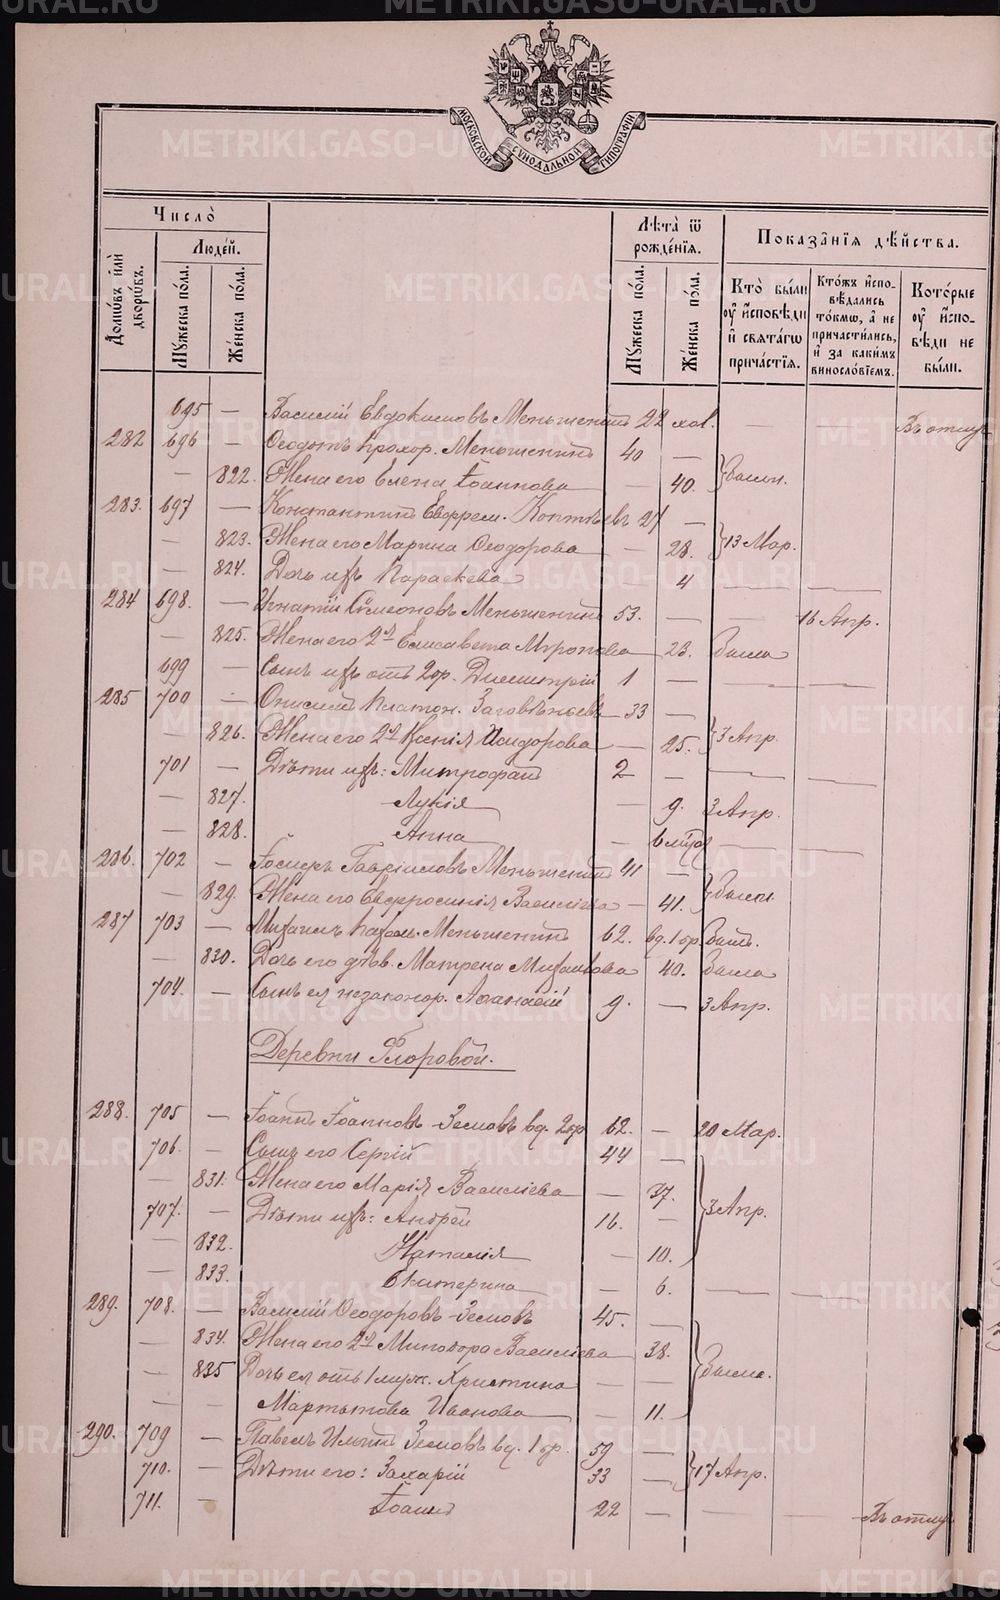 МОСКОВСКОЙ СѴНОДАЛЬНОЙ ТИПОГРАФІИ
Число̀
Людей.
Лѣта̀ ѿ рожде́нія.
Показа́нія дѣ́йства.
Домо́въ и҆лѝ дворо́въ.
Мꙋ́жеска по́ла.
Же́нска по́ла.
Мꙋ́жеска по́ла.
Же́нска по́ла.
Кто̀ бы́ли оу҆ и҆сповѣди и҆ свята́гѡ прича́стїя.
Кто́жъ и҆сповѣ́дались то́кмѡ, а҆ не причасти́лись, и҆ за каки́мъ винослѡ́вїемъ.
Кото́рые оу҆ и҆сповѣди не бы́ли.
695 — Василій Евдокимовъ Меньшенинъ 22 хол. — — Въ отлуч
282 696 — Ѳеодотъ Прохор. Меньшенинъ 40 —
— 822. Жена его Елена Іоаннова — 40. } Были.
283. 697 — Константинъ Евфрем. Коптѣевъ 27 —
— 823. Жена его Марина Ѳеодорова — 28. } 13 Мар.
— 824. Дочь ихъ Параскева — 4 — —
284 698. — Игнатій Сѵмеоновъ Меньшенинъ 53. — — 16 Апр.
— 825. Жена его 2я Елисавета Миронова — 23. Была
699 — Сынъ ихъ отъ 2бр. Димитрій 1 — — —
285 700 — Онисимъ Платон. Заговѣньевъ 33 —
— 826. Жена его 2я Ксенія Исидорова — 25. } 3 Апр.
701 — Дѣти ихъ: Митрофанъ 2 — — —
— 827. Лукія — 9. 3 Апр.
— 828. Анна — 6 мѣся — —
286. 702 — Іосифъ Гавріиловъ Меньшенинъ 41 —
— 829. Жена его Евфросинія Василіева — 41. } Были.
287 703 — Михаилъ Меньшенинъ 62. вд. 1 бр. Былъ.
— 830. Дочь его дѣв. Матрена Михаилова 40. Была
704. — Сынъ ея незаконор. Аѳанасій 9. — 3 Апр.
Деревни Флоровой.
288. 705 — Іоаннъ Іоанновъ Земовъ вд. 2 бр 62. — 20 Мар.
706. — Сынъ его Сергій 44 —
— 831. Жена его Марія Василіева — 37.
707. — Дѣти ихъ: Андрей 16. — } 3 Апр.
— 832. Наталія — 10.
— 833. Екатерина — 6. — —
289. 708. — Василій Ѳеодоровъ Земовъ 45. —
— 834. Жена его 2я Минодора Василіева — 38.
— 835 Дочь ея отъ 1 муж. Христина — — } Были.
— — Мартынова Иванова — 11.
290. 709 — Павелъ Ильинъ Земовъ вд. 1 бр. 59 —
710. — Дѣти его: Захарій 33 — } 17 Апр.
711. — Іоаннъ 22 — — — Въ отлуч
METRIKI.GASO-URAL.RU